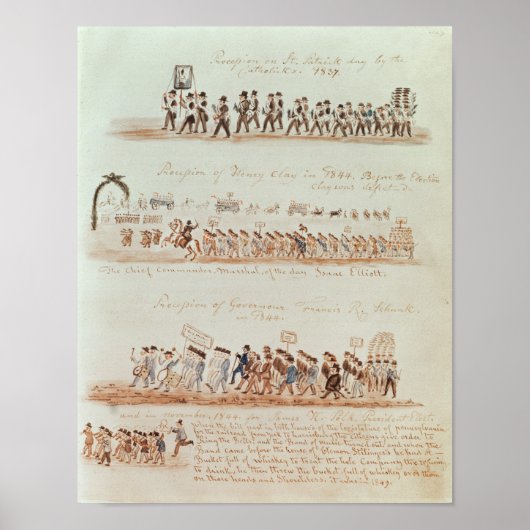 Procession on St. Patrick day by the
Catholicks. 1837.
Procession of Henry Clay in 1844. Before the Election
clay was defeat-d.
The Chief Commander, Marshal, of the day Isaac Elliott.
Procession of Governour Francis R. Schunk.
in 1844.
and in november, 1844. for James K. Polk President Elect.
When the bill past in both houses of the legislature of pennsylvania
for the railroad from york to harrisburg the citizens give order to
Ring the Bells, and the Band of musick turned out and when the
Band came before the house of Clemon Stillinger's he had A
Bucket full of whiskey to treat the hole Company the refusing
to drink, he then threw the bucket full of whiskey over them
on there heads and Shoulders. it was in 1849.